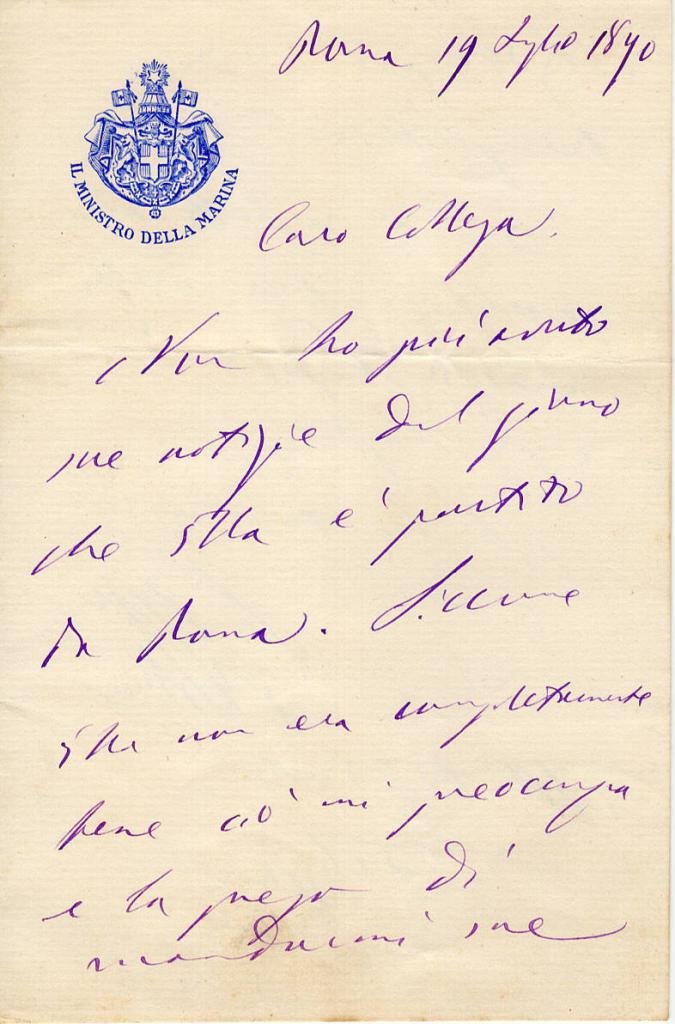 Roma 19 Luglio 1890
IL MINISTRO DELLA MARINA
Caro Collega.
Non ho più avuto
sue notizie dal giorno
che Ella e' partito
da Roma. Siccome
Ella non era completamente
bene ciò mi preoccupa
e la prego di
mandarmi sue